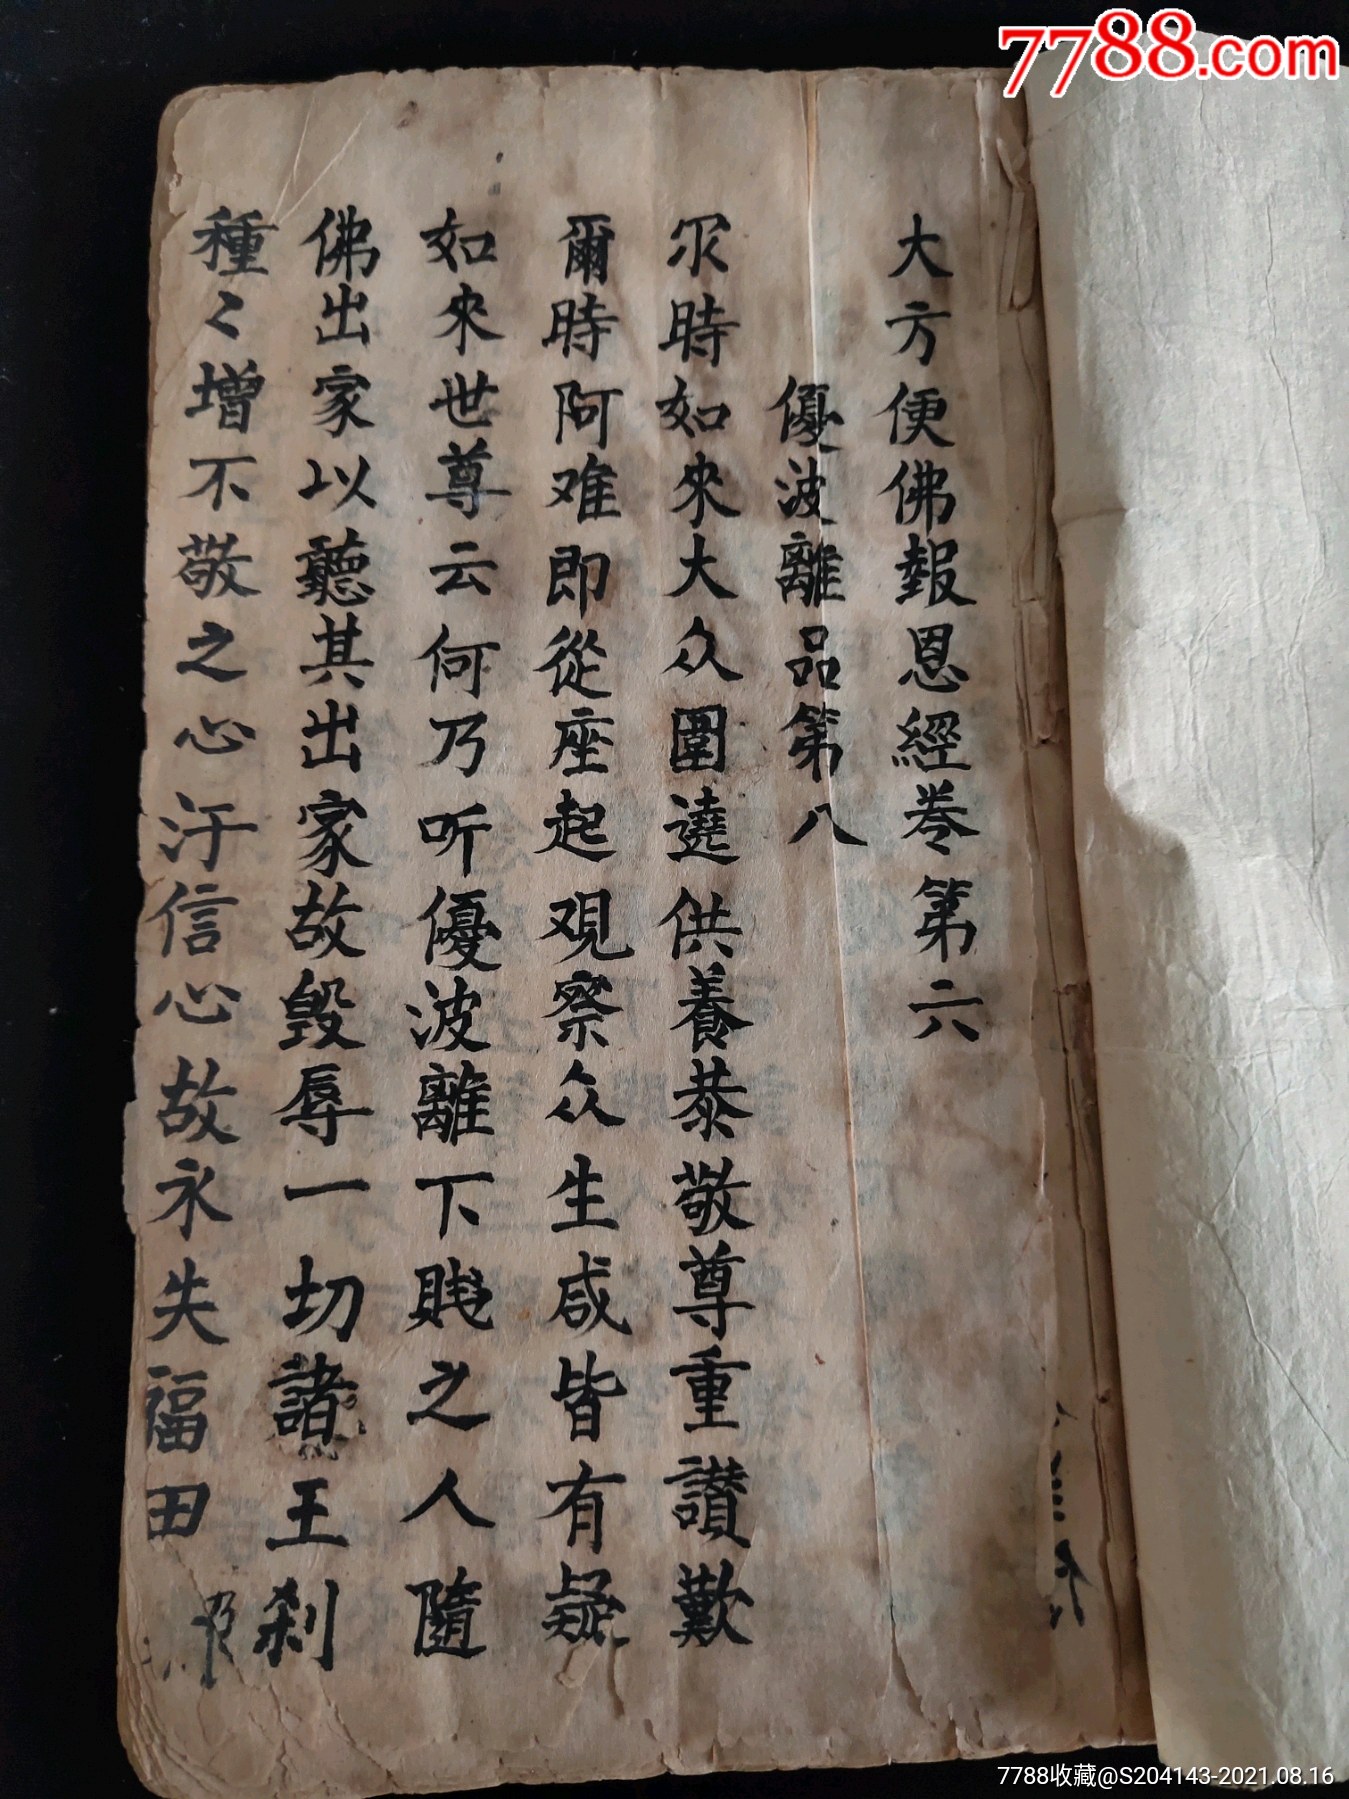 7788.com
大方便佛報恩經卷第六
優波離品第八
尒時如來大众圍遶供養恭敬尊重讃歎
爾時阿难即從座起观察众生咸皆有疑
如來世尊云何乃听優波離下賎之人隨
佛出家以聽其出家故毀辱一切諸王刹
種〻增不敬之心汙信心故永失福田
7788收藏@S204143-2021.08.16